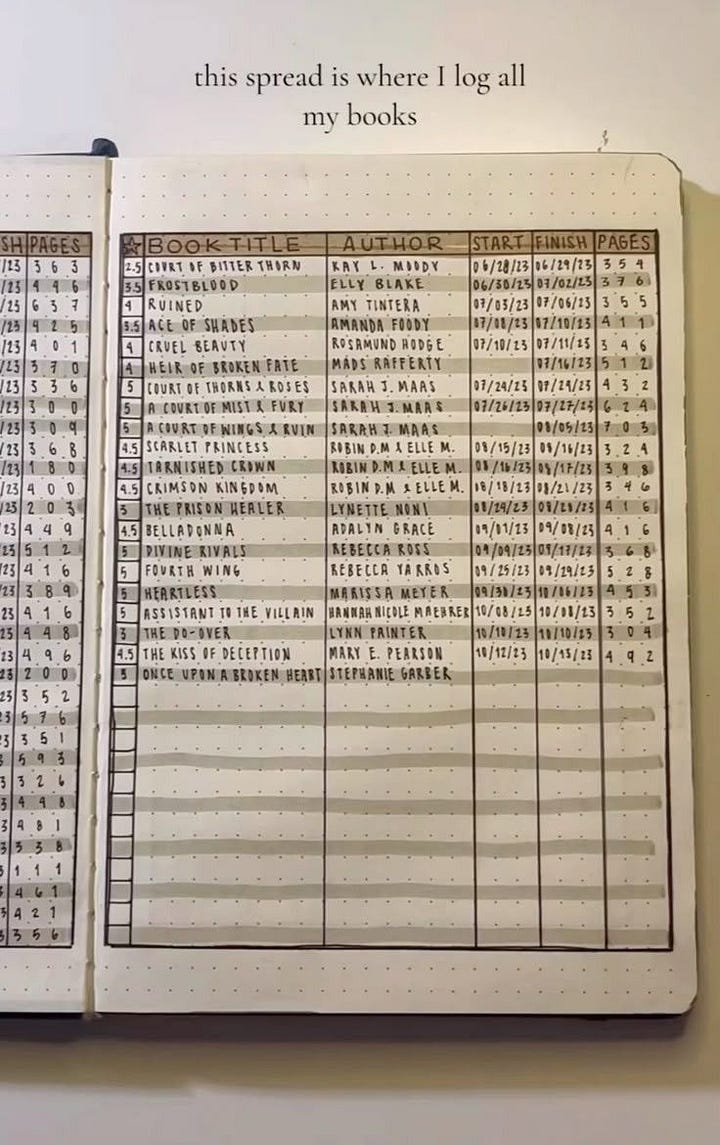 this spread is where I log all
my books
SH PAGES
/23 363
/23 446
/23 637
/23 425
/23 401
/23 370
/23 336
/23 300
/23 309
/23 368
/23 180
/23 400
/23 203
23 449
23 512
23 416
/23 389
23 416
23 448
23 496
23 200
23 352
23 576
23 351
3 593
3 326
3 448
3 481
3 338
3 111
3 461
3 421
3 356
BOOK TITLE AUTHOR START FINISH PAGES
2.5 COURT OF BITTER THORN KAY L. MOODY 06/28/23 06/29/23 354
3.5 FROSTBLOOD ELLY BLAKE 06/30/23 07/02/23 376
4 RUINED AMY TINTERA 07/03/23 07/06/23 355
3.5 ACE OF SHADES AMANDA FOODY 07/08/23 07/10/23 411
4 CRUEL BEAUTY ROSAMUND HODGE 07/10/23 07/11/23 346
4 HEIR OF BROKEN FATE MADS RAFFERTY 07/16/23 512
5 COURT OF THORNS & ROSES SARAH J. MAAS 07/24/23 07/24/23 432
5 A COURT OF MIST & FURY SARAH J. MAAS 07/26/23 07/27/23 624
5 A COURT OF WINGS & RUIN SARAH J. MAAS 08/05/23 703
4.5 SCARLET PRINCESS ROBIN D.M & ELLE M. 08/15/23 08/16/23 324
4.5 TARNISHED CROWN ROBIN D.M & ELLE M. 08/16/23 08/17/23 398
4.5 CRIMSON KINGDOM ROBIN D.M & ELLE M. 08/18/23 08/21/23 346
5 THE PRISON HEALER LYNETTE NONI 08/24/23 08/28/23 416
4.5 BELLADONNA ADALYN GRACE 09/01/23 09/08/23 416
5 DIVINE RIVALS REBECCA ROSS 09/09/23 09/17/23 368
5 FOURTH WING REBECCA YARROS 09/25/23 09/29/23 528
5 HEARTLESS MARISSA MEYER 09/30/23 10/06/23 453
5 ASSISTANT TO THE VILLAIN HANNAH NICOLE MAEHRER 10/08/23 10/08/23 352
3 THE DO-OVER LYNN PAINTER 10/10/23 10/10/23 304
4.5 THE KISS OF DECEPTION MARY E. PEARSON 10/12/23 10/13/23 492
5 ONCE UPON A BROKEN HEART STEPHANIE GARBER